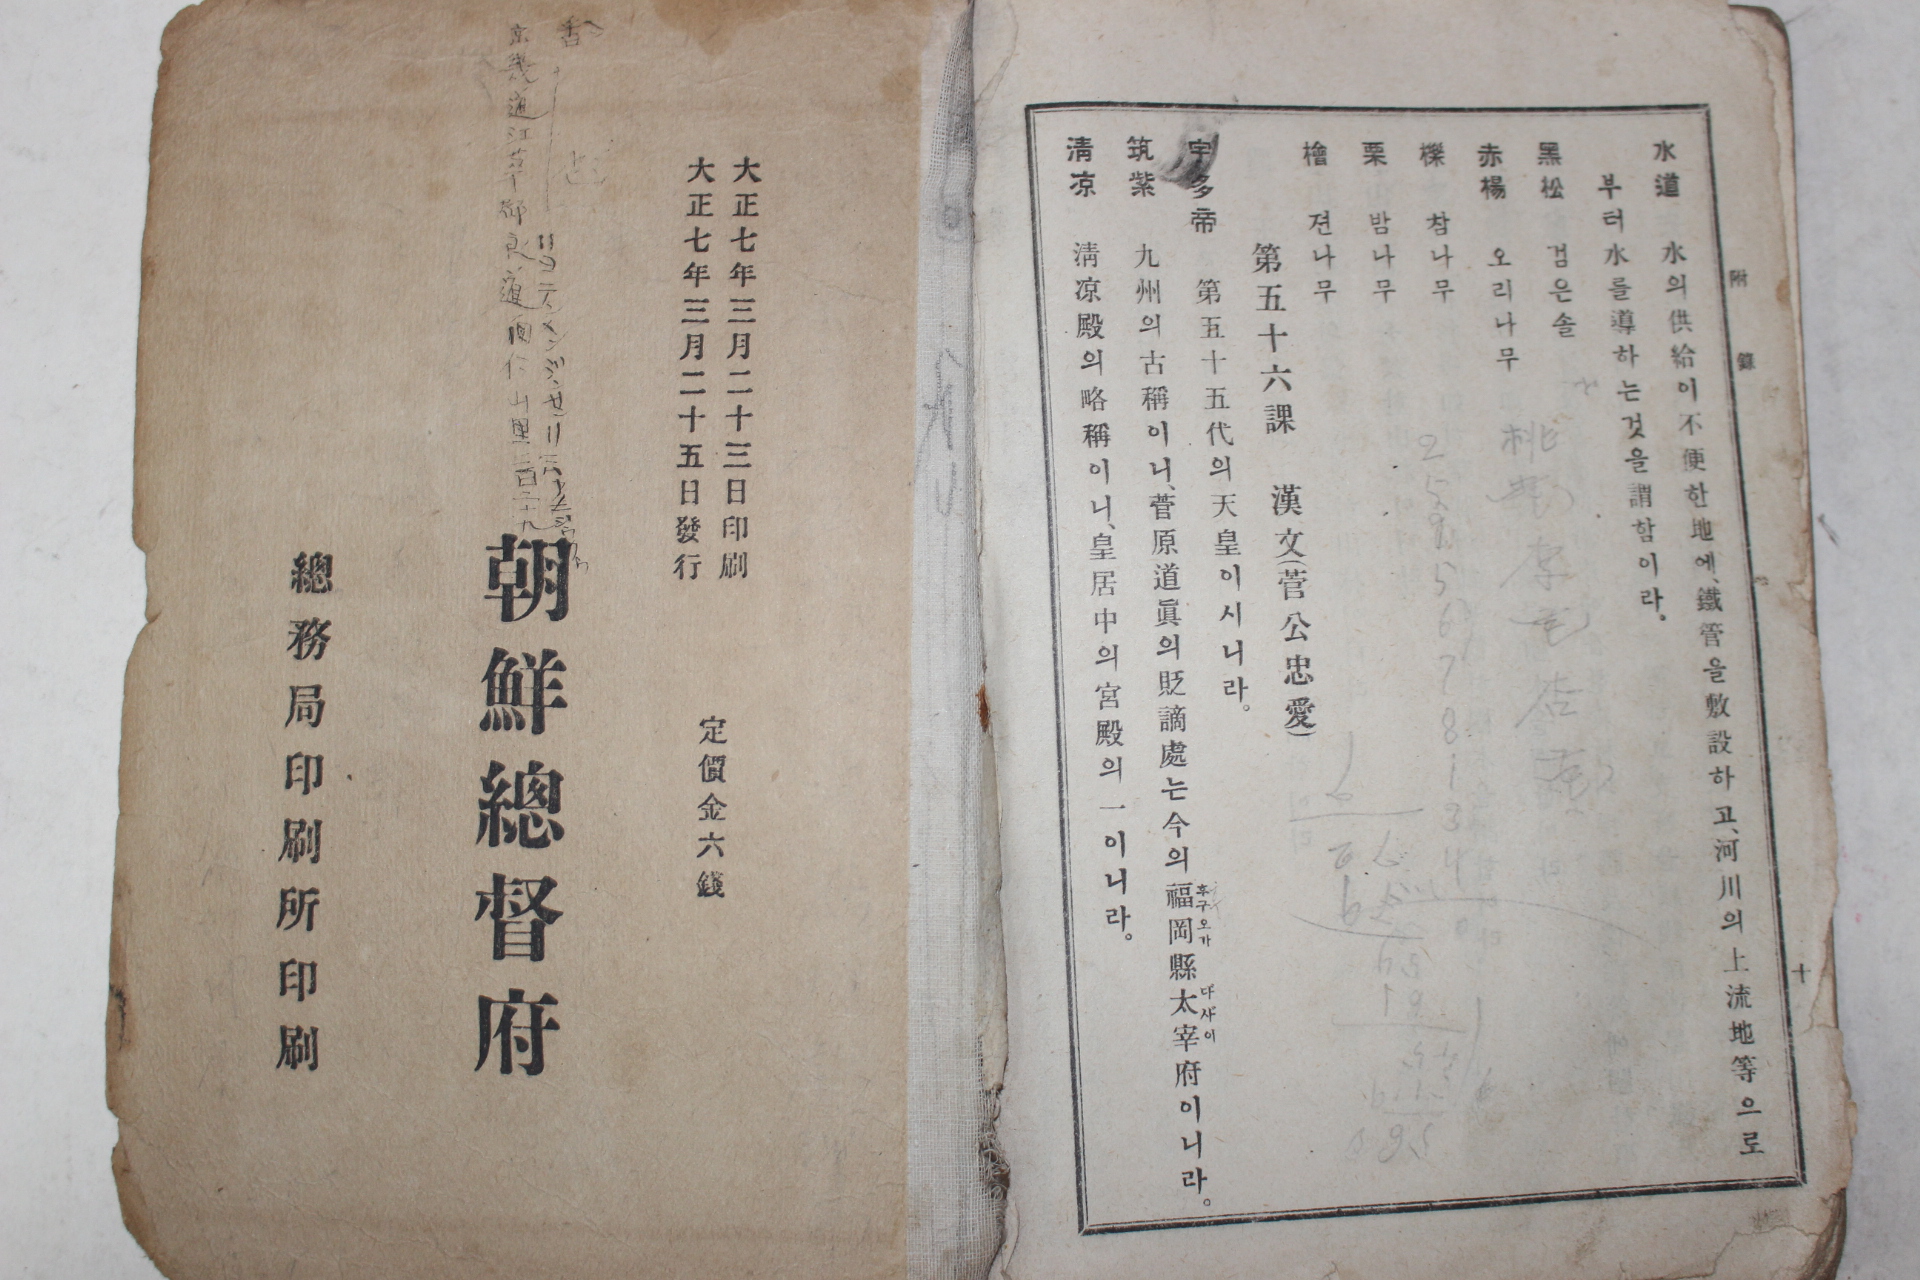 附錄
十
水道 水의供給이不便한地에、鐵管을敷設하고、河川의上流地等으로
부터水를導하는것을謂함이라。
黑松 검은솔
赤楊 오리나무
櫟 참나무
栗 밤나무
檜 젼나무
第五十六課 漢文(菅公忠愛)
宇多帝 第五十五代의天皇이시니라。
筑紫 九州의古稱이니、菅原道眞의貶謫處는今의福岡縣太宰府이니라。
후구오가 다사이
淸凉 淸凉殿의略稱이니、皇居中의宮殿의一이니라。
大正七年三月二十三日印刷
大正七年三月二十五日發行
定價金六錢
朝鮮總督府
總務局印刷所印刷